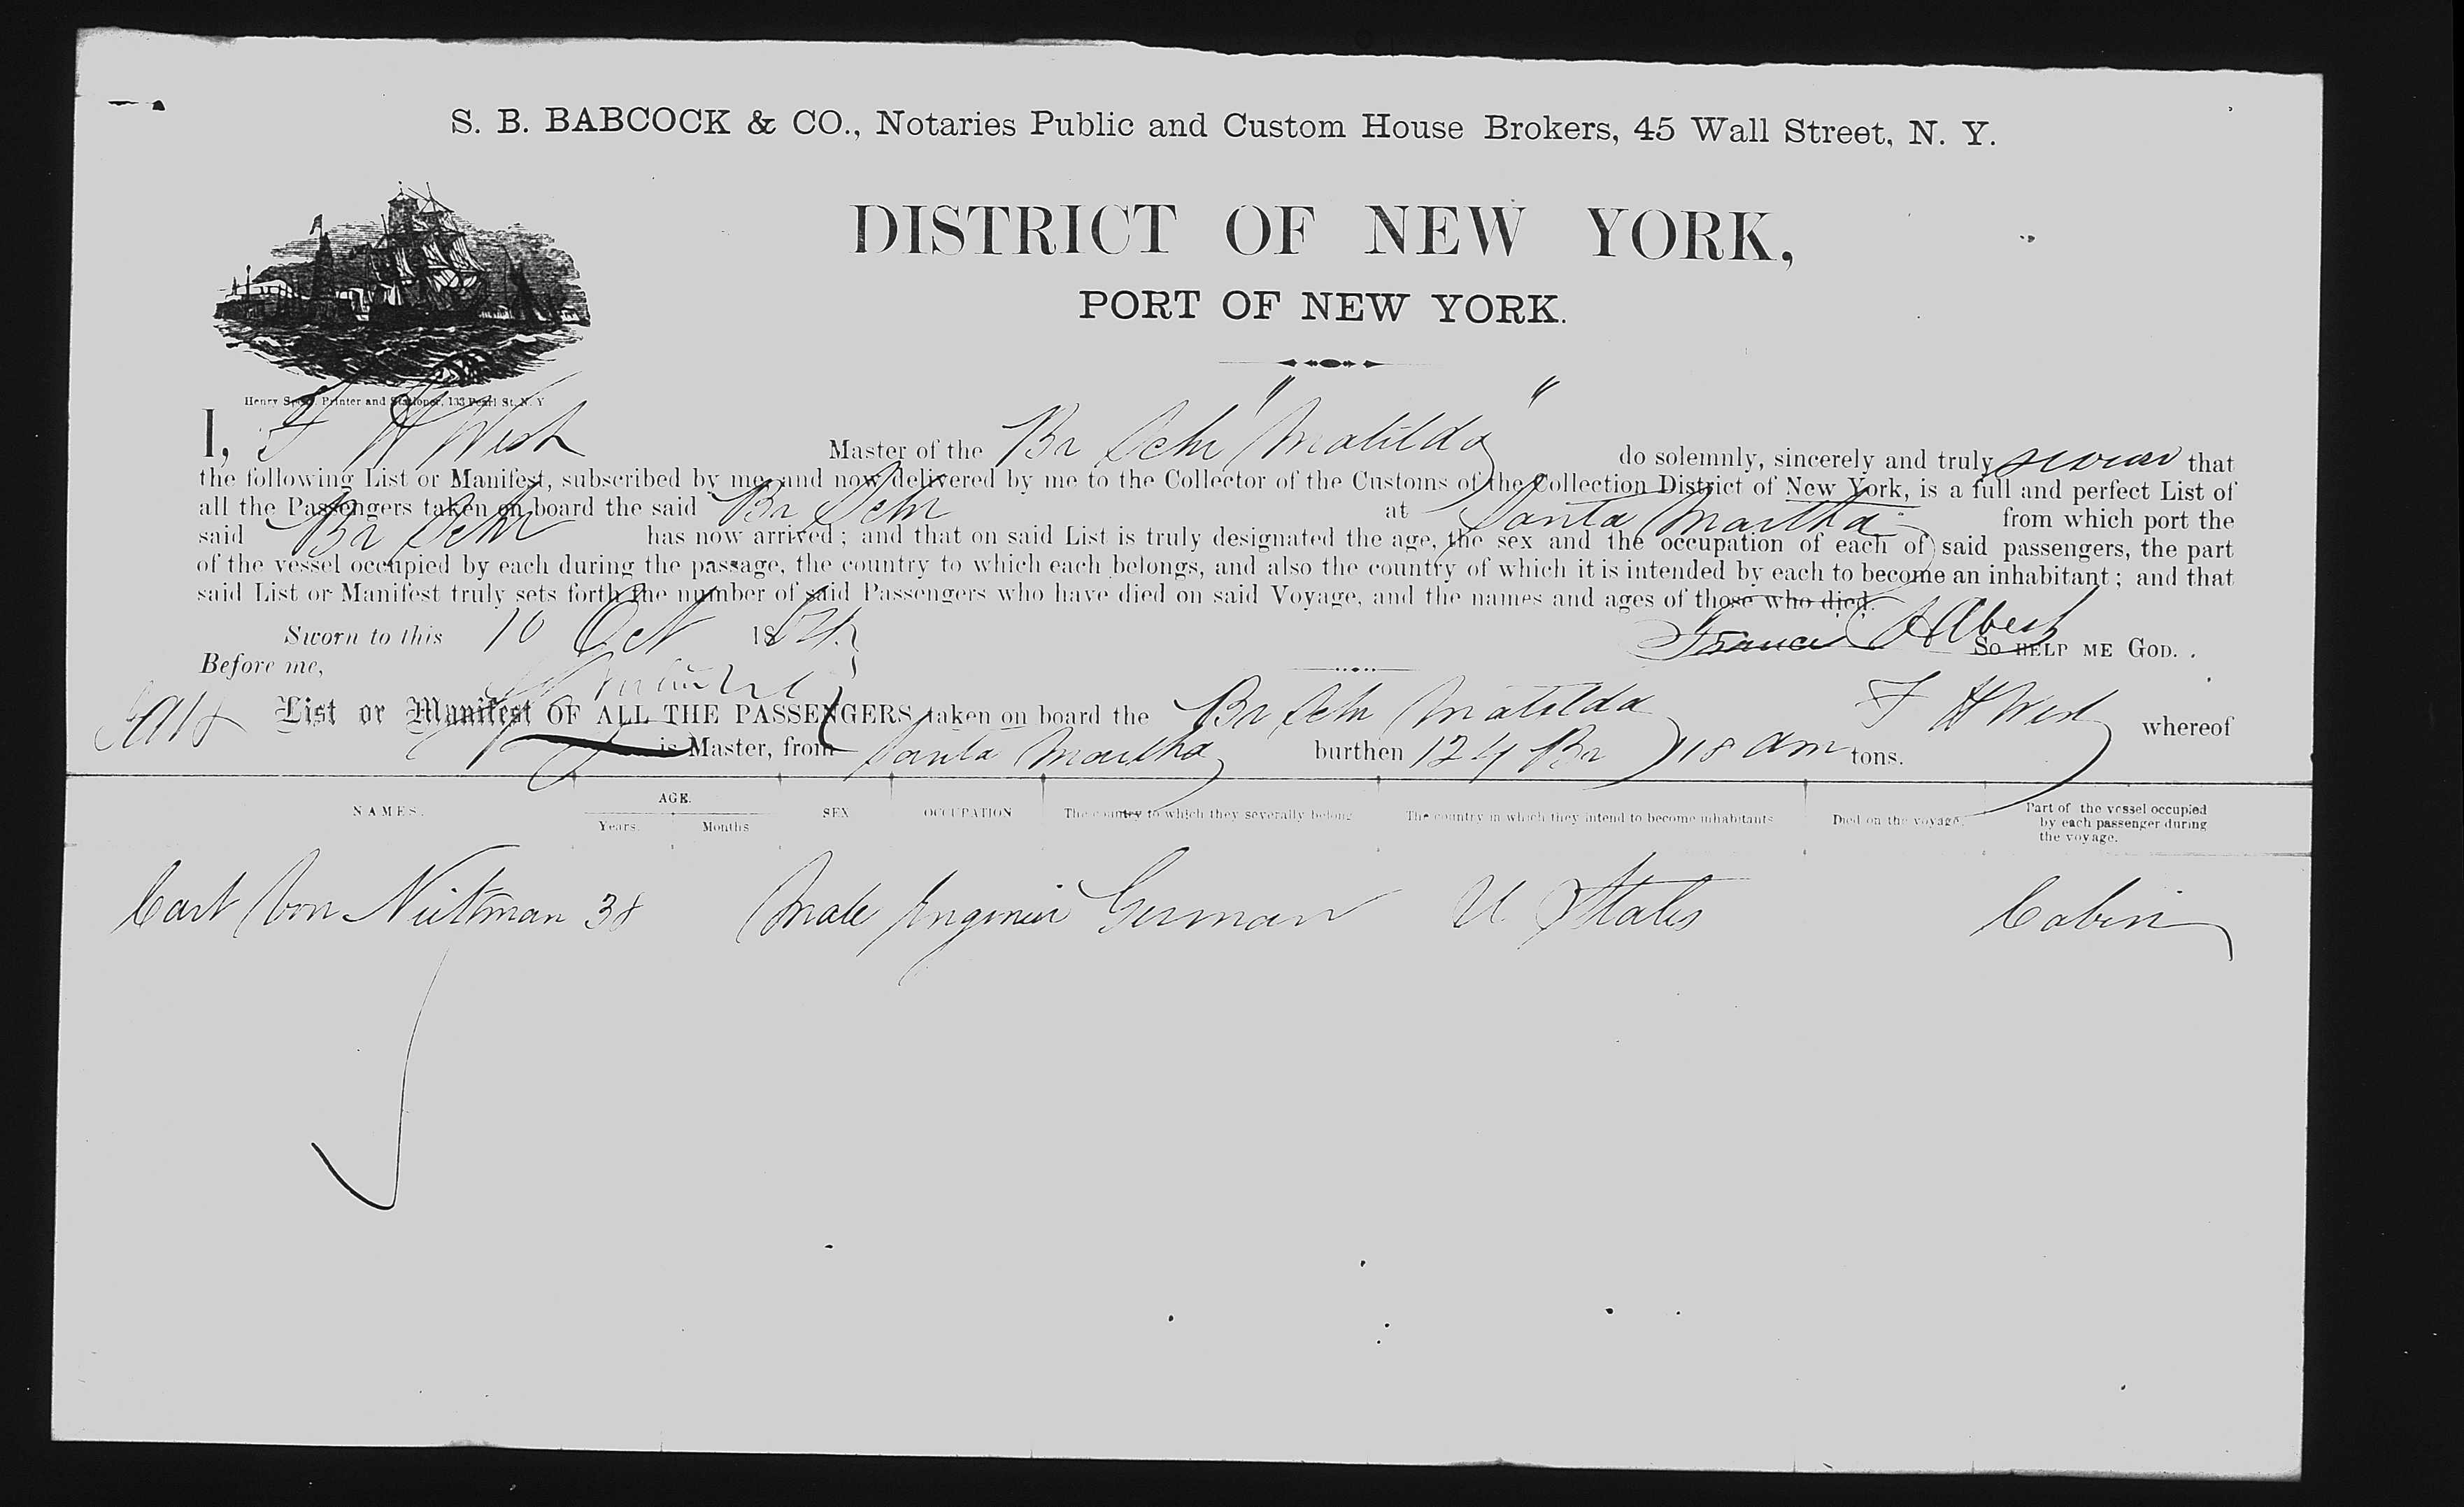 S. B. BABCOCK & CO., Notaries Public and Custom House Brokers, 45 Wall Street, N. Y.
DISTRICT OF NEW YORK,
PORT OF NEW YORK.
Henry Printer and Stationer, 133 Pearl St. N. Y
I, F H West Master of the Br Schr "Matilda" do solemnly, sincerely and truly swear that
the following List or Manifest, subscribed by me and now delivered by me to the Collector of the Customs of the Collection District of New York, is a full and perfect List of
all the Passengers taken on board the said Br Schr at Santa Martha from which port the
said Br Schr has now arrived; and that on said List is truly designated the age, the sex and the occupation of each of said passengers, the part
of the vessel occupied by each during the passage, the country to which each belongs, and also the country of which it is intended by each to become an inhabitant; and that
said List or Manifest truly sets forth the number of said Passengers who have died on said Voyage, and the names and ages of those who died.
Sworn to this 10 Oct 18 Francis SO HELP ME GOD.
Before me,
List or Manifest OF ALL THE PASSENGERS taken on board the Br Schr Matilda F H West whereof
is Master, from Santa Martha burthen 124 Br tons.
NAMES. AGE. Years. Months SEX OCCUPATION The country to which they severally belong The country in which they intend to become inhabitants Died on the voyage. Part of the vessel occupied by each passenger during the voyage.
Carl Von 38 Male Engineer German U States Cabin